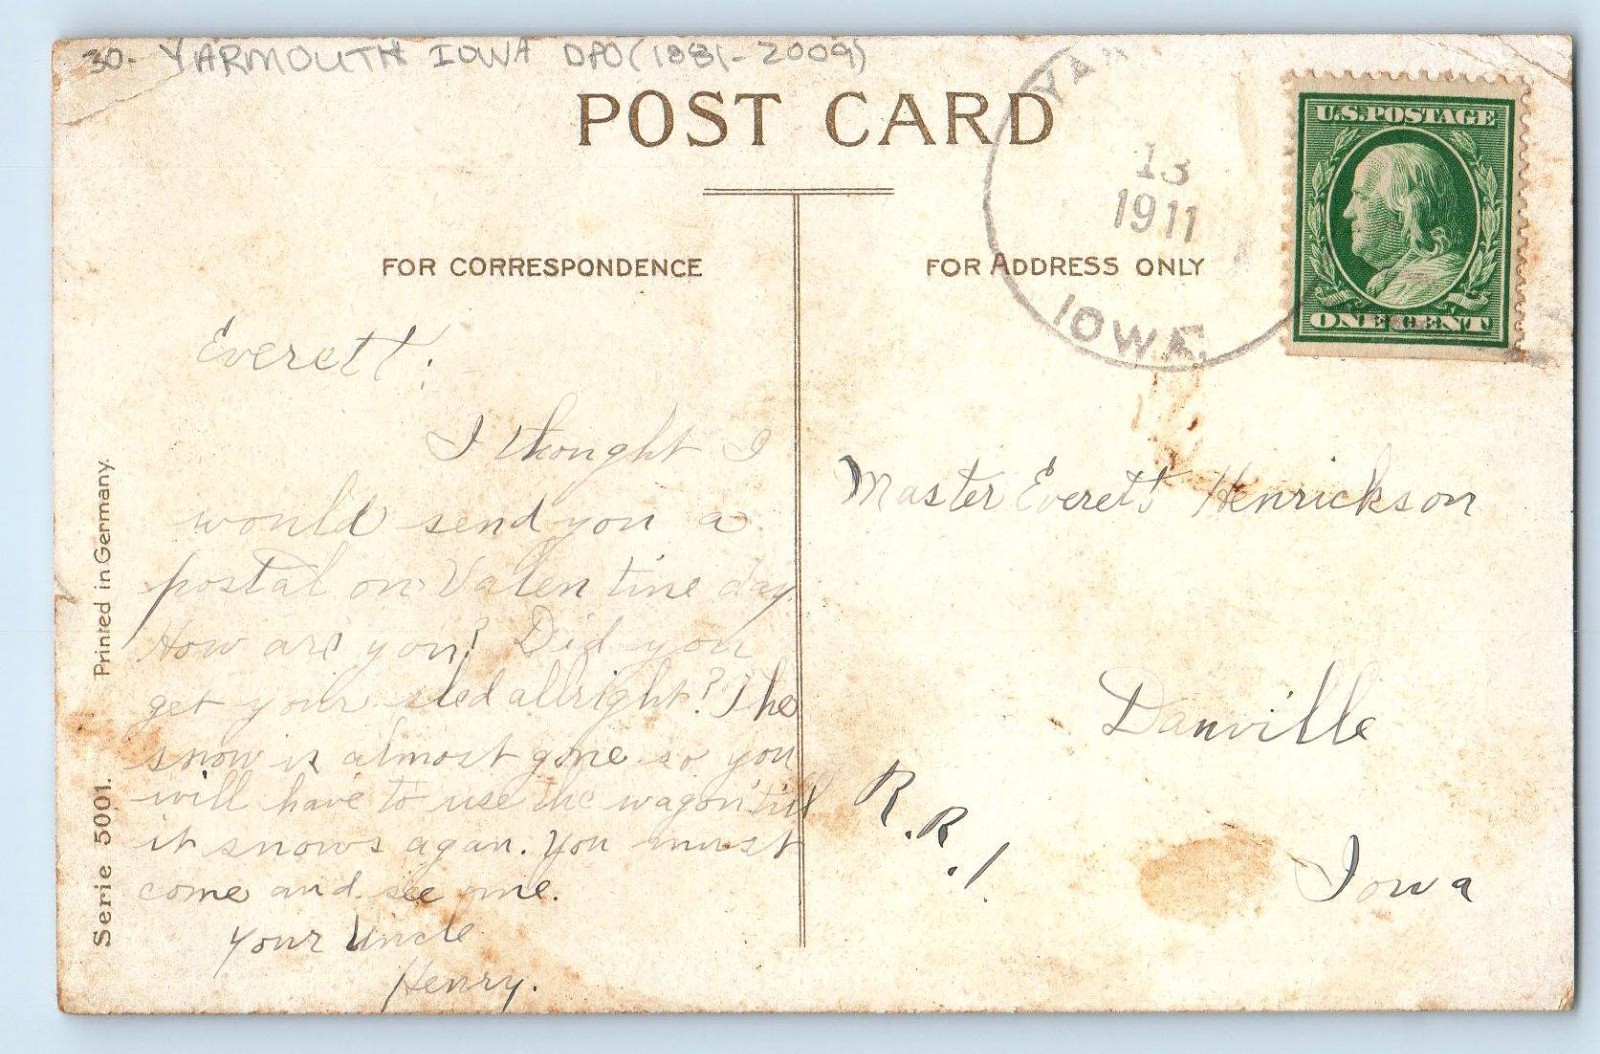 30- YARMOUTH IOWA DPO (1881-2009)
POST CARD
YAR
13
1911
IOWA
U.S. POSTAGE
ONE CENT
FOR CORRESPONDENCE
FOR ADDRESS ONLY
Everett:
I thought I
would send you a
postal on Valentine day.
How are you? Did you
get your sled allright? The
snow is almost gone so you
will have to use the wagon till
it snows agan. You must
come and see me.
Your Uncle
Henry.
Master Everett Henrickson
Danville
R.R.1
Iowa
Printed in Germany.
Serie 5001.